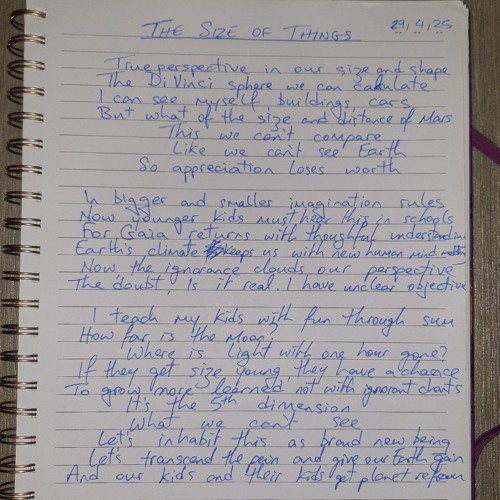 THE SIZE OF THINGS
29/4/25
True perspective in our size and shape
The Di Vinci sphere we can calculate
I can see myself, buildings, cars
But what of the size and distance of Mars
This we can't compare
Like we can't see Earth
So appreciation loses worth
In bigger and smaller imagination rules
Now younger kids must hear this in schools
For Gaia returns with thoughtful understanding
Earth's climate keeps us with new human mind
Now the ignorance clouds our perspective
The 'doubt', Is it real. I have unclear objective
I teach my kids with fun through sum
How far is the Moon?
Where is Light with one hour gone?
If they get size young they have a chance
To grow more 'learned' not with ignorant chants
It's the 5th dimension
What we can't see
Let's inhabit this as brand new being
Let's transcend the pawn and give our Earth gain
And our kids and their kids get planet reform